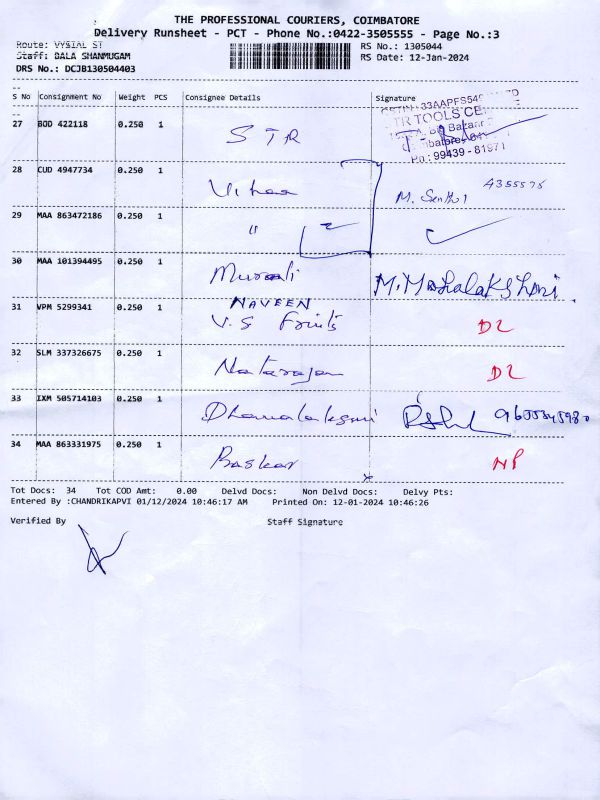 THE PROFESSIONAL COURIERS, COIMBATORE
Delivery Runsheet - PCT - Phone No.:0422-3505555 - Page No.:3
Route: VYSIAL ST
RS No.: 1305044
Staff: BALA SHANMUGAM
RS Date: 12-Jan-2024
DRS No.: DCJB130504403
S No Consignment No Weight PCS Consignee Details Signature
27 BOD 422118 0.250 1 STR
STR TOOLS CE
Ph : 99439 - 81971
28 CUD 4947734 0.250 1 M. Senthil
29 MAA 863472186 0.250 1 "
30 MAA 101394495 0.250 1 Murali M. Mahalakshmi
NAVEEN
31 VPM 5299341 0.250 1 V.S Fruits DL
32 SLM 337326675 0.250 1 Natarajan DL
33 IXM 505714103 0.250 1 Dhanalakshmi
34 MAA 863331975 0.250 1 Baskar NP
Tot Docs: 34 Tot COD Amt: 0.00 Delvd Docs: Non Delvd Docs: Delvy Pts:
Entered By :CHANDRIKAPVI 01/12/2024 10:46:17 AM Printed On: 12-01-2024 10:46:26
Verified By Staff Signature